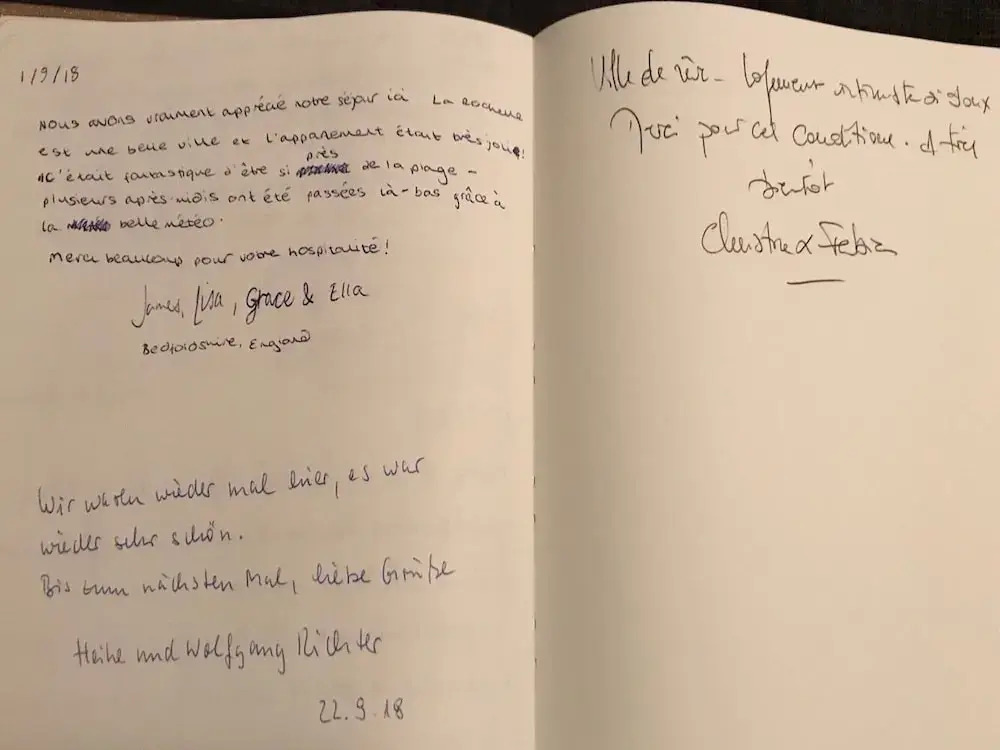 1/9/18
Nous avons vraiment apprécié notre séjour ici La Rochelle
est une belle ville et l'appartement était très jolie!
C'était fantastique d'être si près de la plage -
plusieurs après-midis ont été passées là-bas grâce à
la belle météo.
Merci beaucoup pour votre hospitalité!
James, Lisa, Grace & Ella
Bedfordshire, England
Wir waren wieder mal hier, es war
wieder sehr schön.
Bis zum nächsten Mal, liebe Grüße
Heike und Wolfgang Richter
22.9.18
Ville de rêve - logement
Merci pour ces conditions. A très
bientôt
Christine &